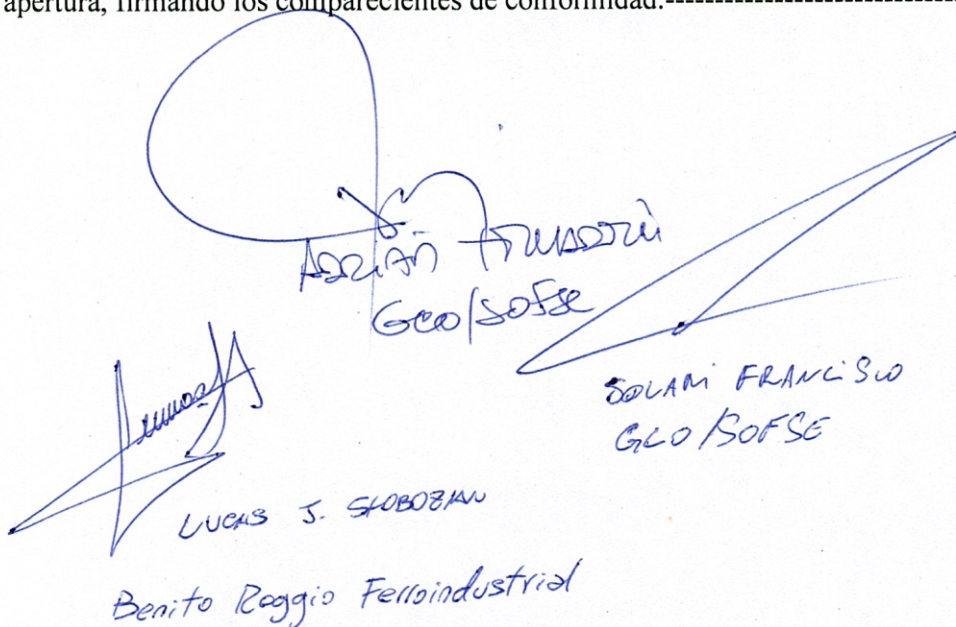 apertura, firmando los comparecientes de conformidad.--------------------------------
ADRIÁN
GCO/SOFSE
SOLARI FRANCISCO
GCO/SOFSE
LUCAS J. SLOBOZIAN
Benito Roggio Ferroindustrial